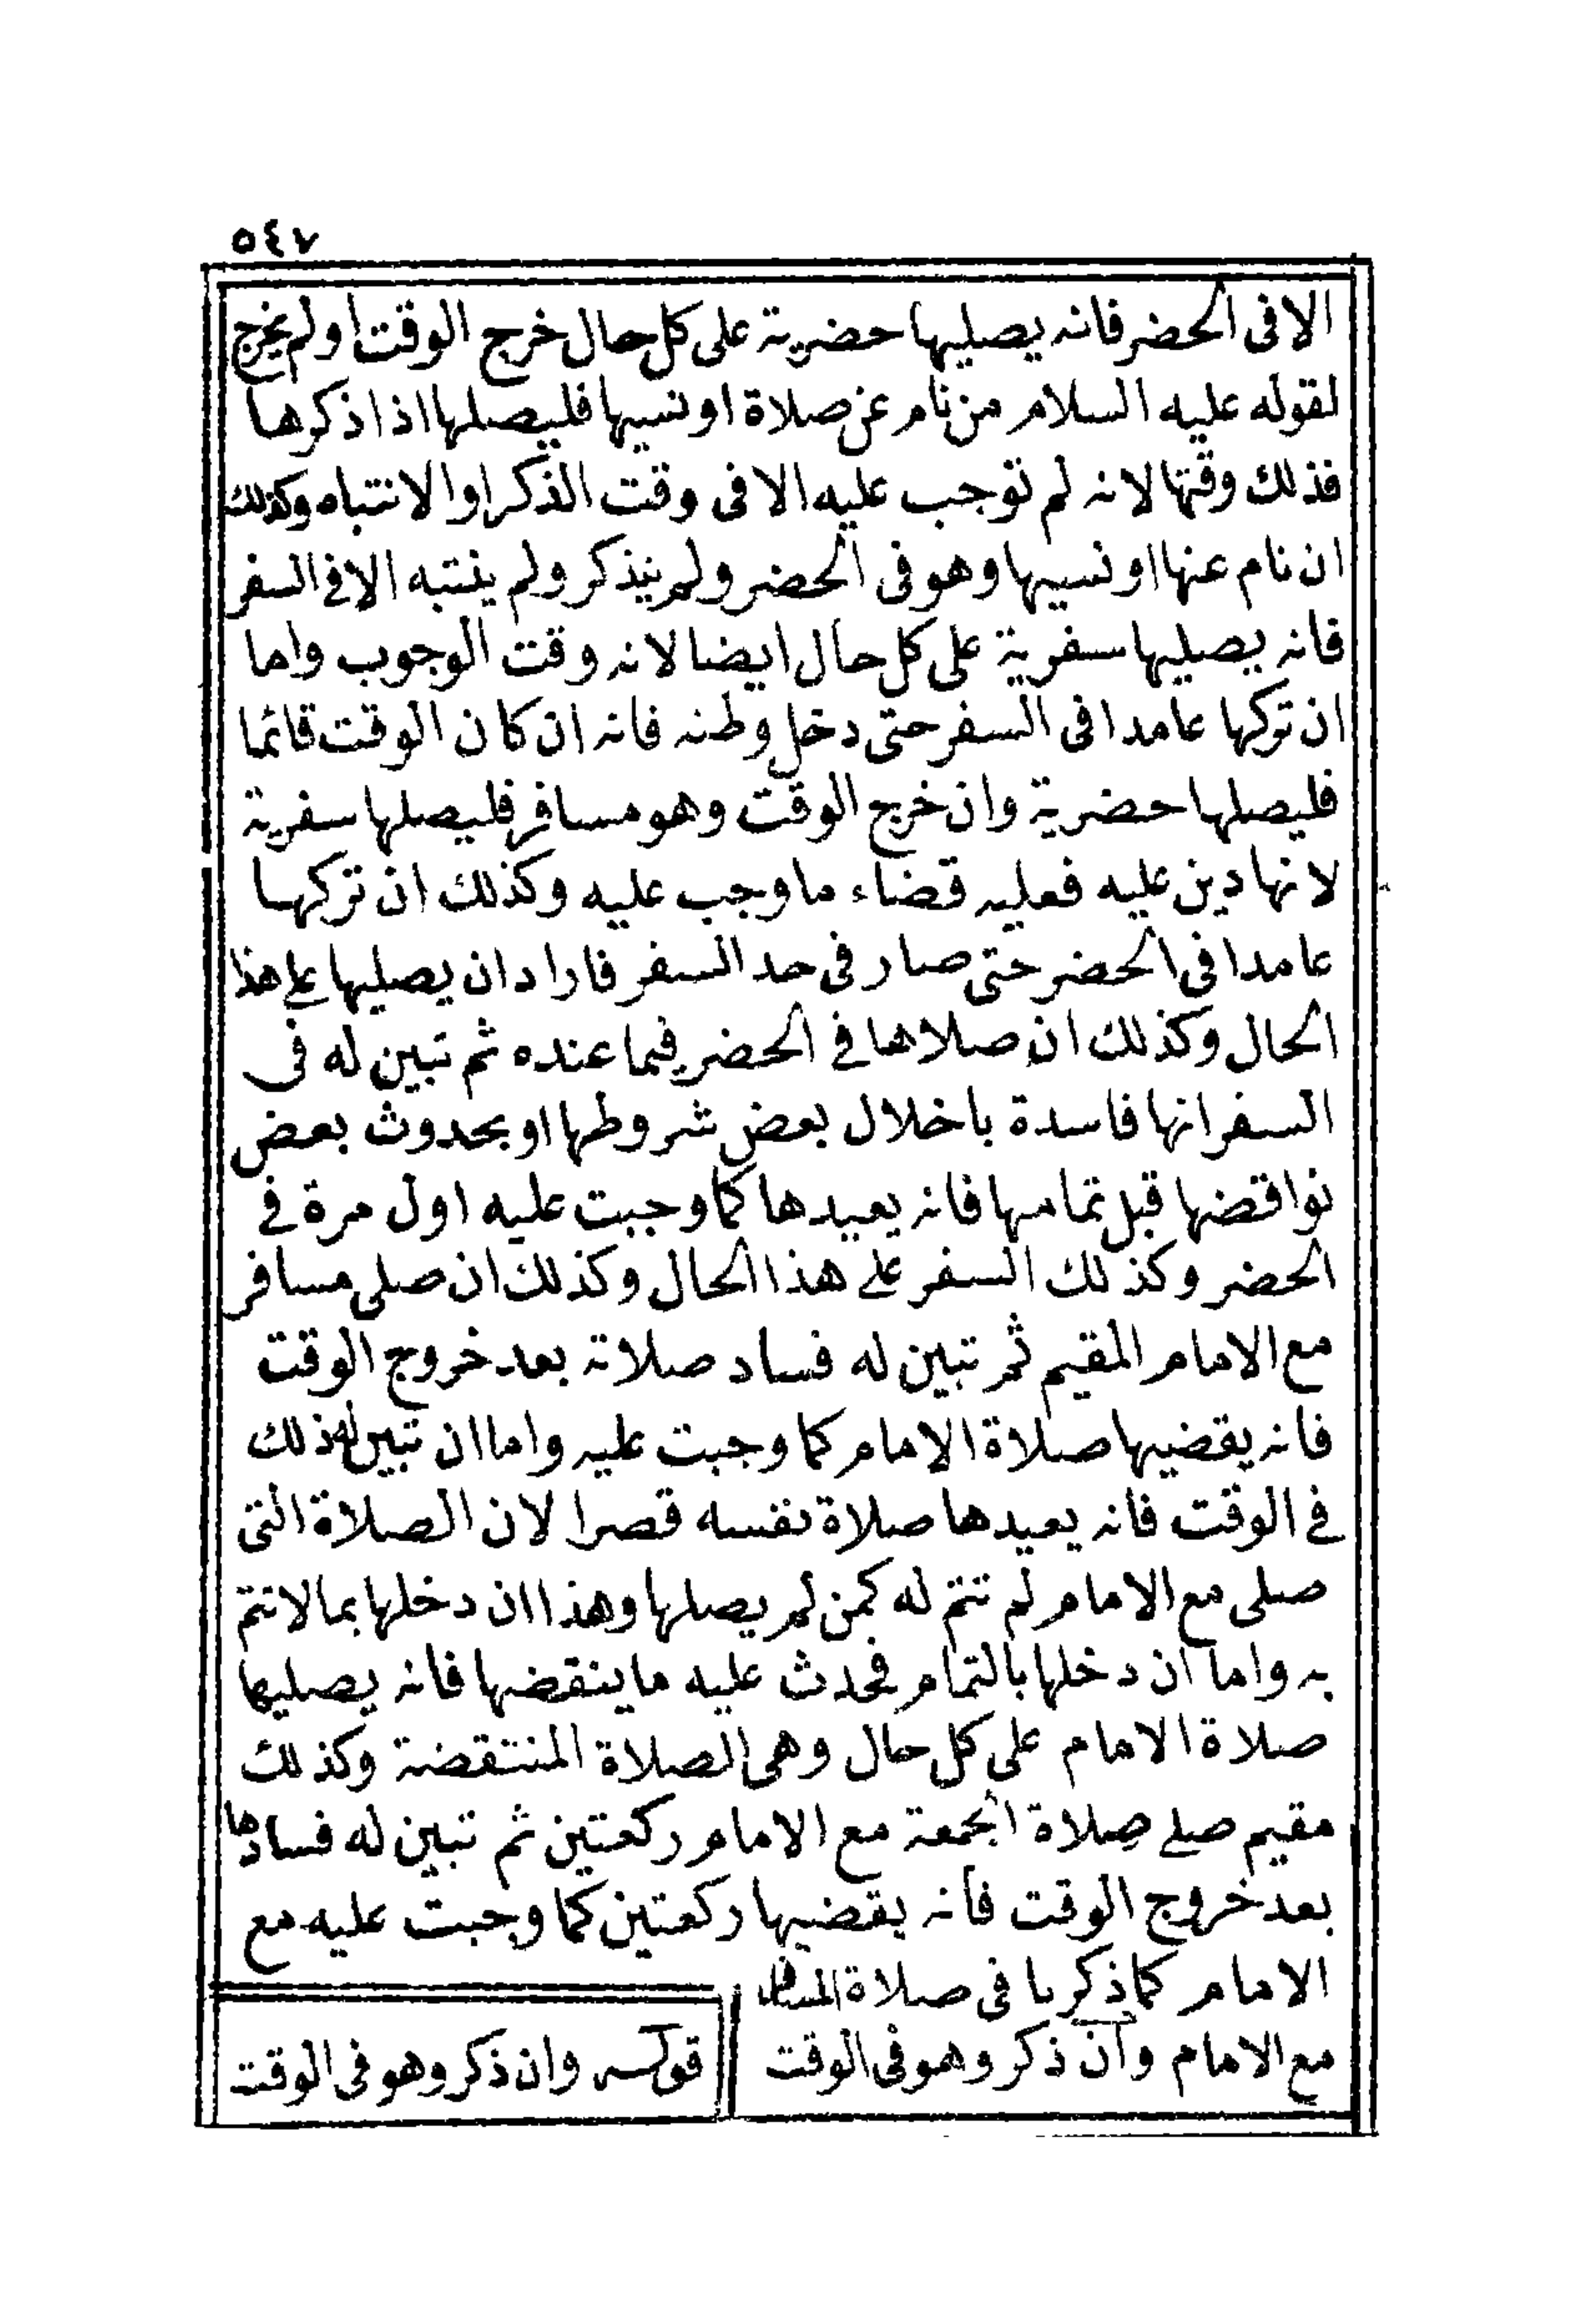 ٥٤٧
الا فى الحضر فانه يصليها حضرية على كل حال خرج الوقت او لم يخرج
لقوله عليه السلام من نام عن صلاة او نسيها فليصلها اذا ذكرها
فذلك وقتها لانه لم توجب عليه الا فى وقت الذكر او الانتباه وكذلك
ان نام عنها او نسيها وهو فى الحضر ولم يتذكر ولم ينتبه الا في السفر
فانه يصليها سفرية على كل حال ايضا لانه وقت الوجوب واما
ان تركها عامدا فى السفر حتى دخل وطنه فانه ان كان الوقت قائما
فليصلها حضرية وان خرج الوقت وهو مسافر فليصلها سفرية
لانها دين عليه فعليه قضاء ما وجب عليه وكذلك ان تركها
عامدا في الحضر حتى صار فى حد السفر فاراد ان يصليها على هذا
الحال وكذلك ان صلاها في الحضر فيما عنده ثم تبين له فى
السفر انها فاسدة باخلال بعض شروطها او بحدوث بعض
نواقضها قبل تمامها فانه يعيدها كما وجبت عليه اول مرة في
الحضر وكذلك السفر على هذا الحال وكذلك ان صلى مسافر
مع الامام المقيم ثم تبين له فساد صلاته بعد خروج الوقت
فانه يقضيها صلاة الامام كما وجبت عليه واما ان تبين له ذلك
في الوقت فانه يعيدها صلاة نفسه قصرا لان الصلاة التى
صلى مع الامام لم تتم له كمن لم يصلها وهذا ان دخلها بما لا تتم
به واما ان دخلها بالتمام فحدث عليه ما ينقضها فانه يصليها
صلاة الامام على كل حال وهى الصلاة المنتقضة وكذلك
مقيم صلى صلاة الجمعة مع الامام ركعتين ثم تبين له فسادها
بعد خروج الوقت فانه يقضيها ركعتين كما وجبت عليه مع
الامام كما ذكرنا فى صلاة المسافر
مع الامام وان ذكر وهو فى الوقت
قوله وان ذكر وهو فى الوقت